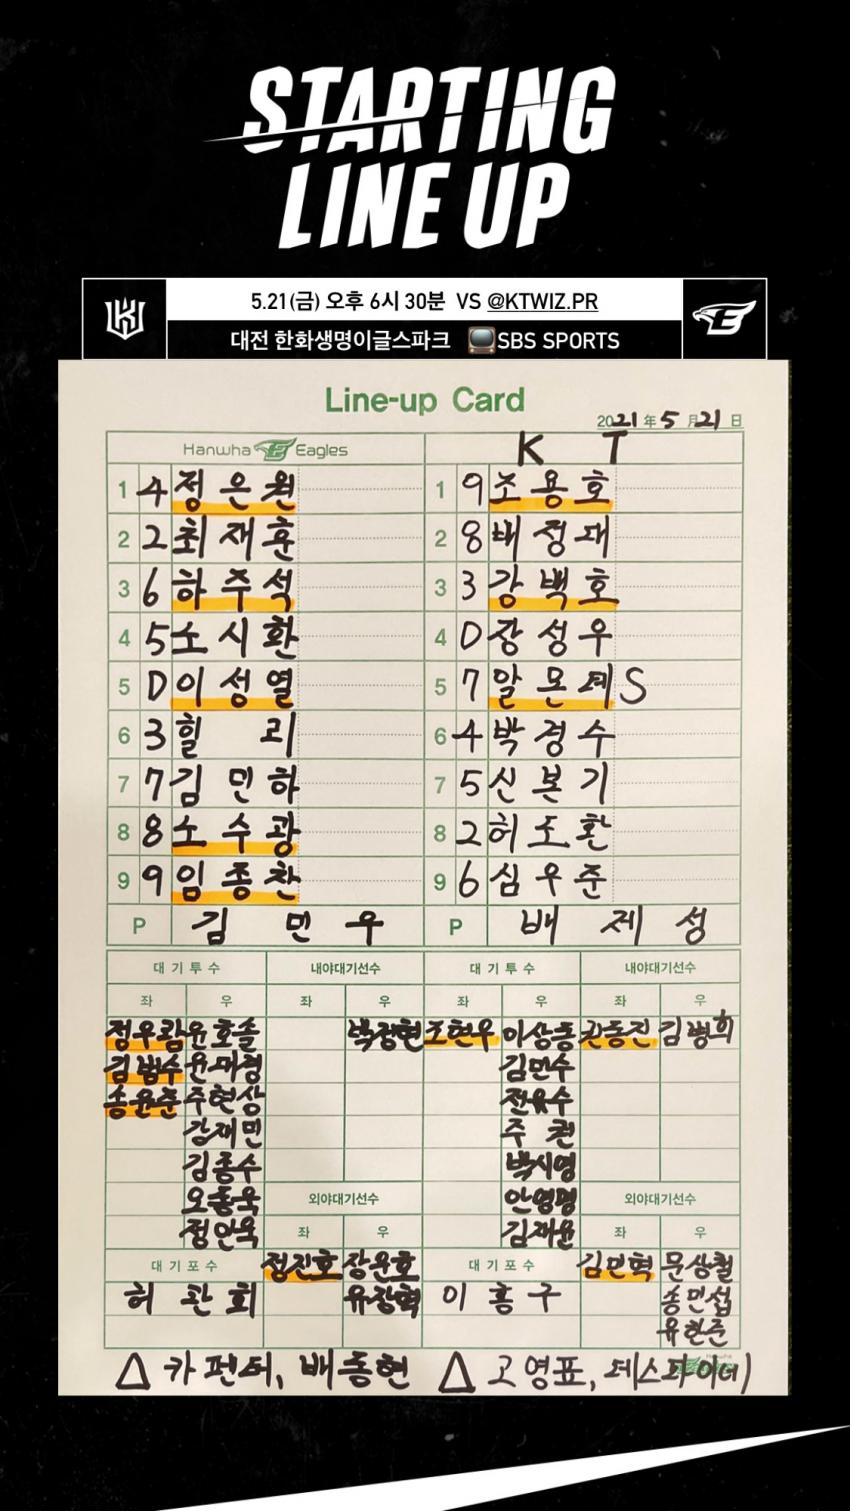 STARTING
LINE UP
5.21(금) 오후 6시 30분 VS @KTWIZ.PR
대전 한화생명이글스파크 SBS SPORTS
Line-up Card
2021年 5月 21日
Hanwha Eagles K T
1 4 정은원 1 9 조용호
2 2 최재훈 2 8 배정대
3 6 하주석 3 3 강백호
4 5 노시환 4 D 장성우
5 D 이성열 5 7 알몬테 S
6 3 힐리 6 4 박경수
7 7 김민하 7 5 신본기
8 8 노수광 8 2 허도환
9 9 임종찬 9 6 심우준
P 김민우 P 배제성
대기투수 내야대기선수 대기투수 내야대기선수
좌 우 좌 우 좌 우 좌 우
정우람 윤호솔 박정현 조현우 이상동 권동진 김병희
김범수 윤대경 김민수
송윤준 주현상 전유수
강재민 주권
김종수 박시영
오동욱 외야대기선수 안영명 외야대기선수
정인욱 좌 우 김재윤 좌 우
대기포수 정진호 장운호 대기포수 김민혁 문상철
허관회 유장혁 이홍구 송민섭
유한준
△ 카펜터, 배동현 △ 고영표, 데스파이네